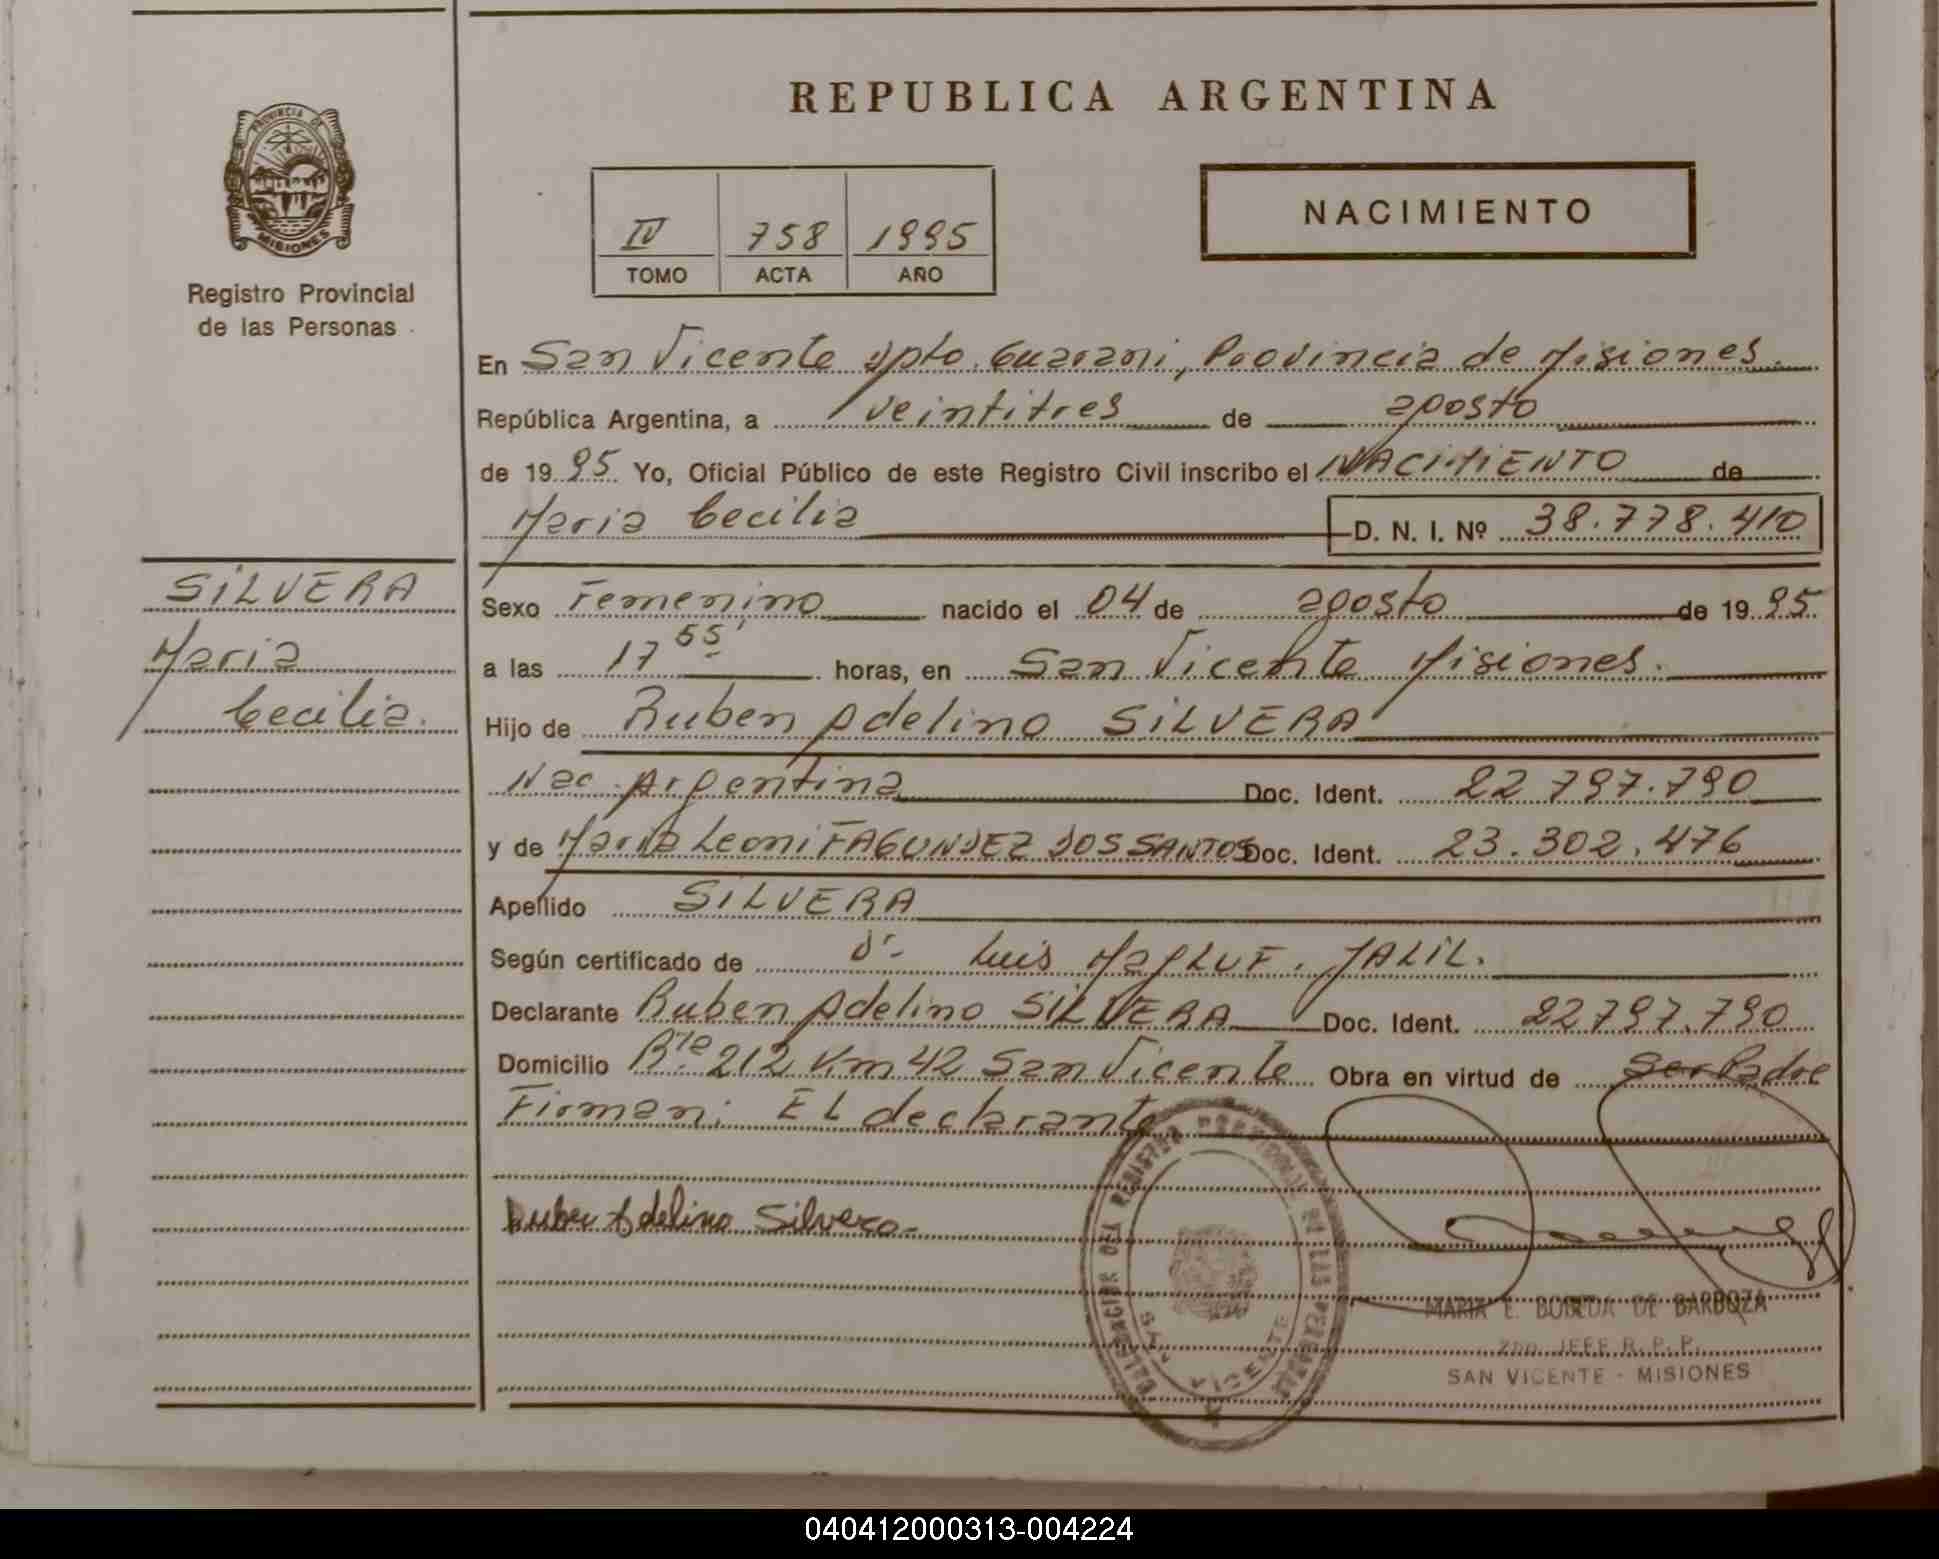 REPUBLICA ARGENTINA
PROVINCIA DE
MISIONES
Registro Provincial
de las Personas
IV 758 1995
TOMO ACTA AÑO
NACIMIENTO
En San Vicente Dpto. Guarani, Provincia de Misiones.
República Argentina, a veintitres de agosto
de 19 95 Yo, Oficial Público de este Registro Civil inscribo el NACIMIENTO de
Maria Cecilia D. N. I. Nº 38.778.410
SILVERA
Maria
Cecilia.
Sexo Femenino nacido el 04 de agosto de 19 95
a las 17 55' horas, en San Vicente Misiones.
Hijo de Ruben Adelino SILVERA
Nac. Argentina Doc. Ident. 22 797.790
y de Maria Leoni FAGUNDEZ DOS SANTOS Doc. Ident. 23.302.476
Apellido SILVERA
Según certificado de Dr. Luis MagLUF. JALIL.
Declarante Ruben Adelino SILVERA Doc. Ident. 22797.790
Domicilio Rta. 212 Km 42 San Vicente Obra en virtud de Ser Padre
Firman: El declarante
Ruben Adelino Silvera
DELEGACION DEL REGISTRO PROVINCIAL DE LAS PERSONAS
SAN VICENTE
MARIA E. BOBEDA DE BARBOZA
2do. JEFE R. P. P.
SAN VICENTE - MISIONES
040412000313-004224